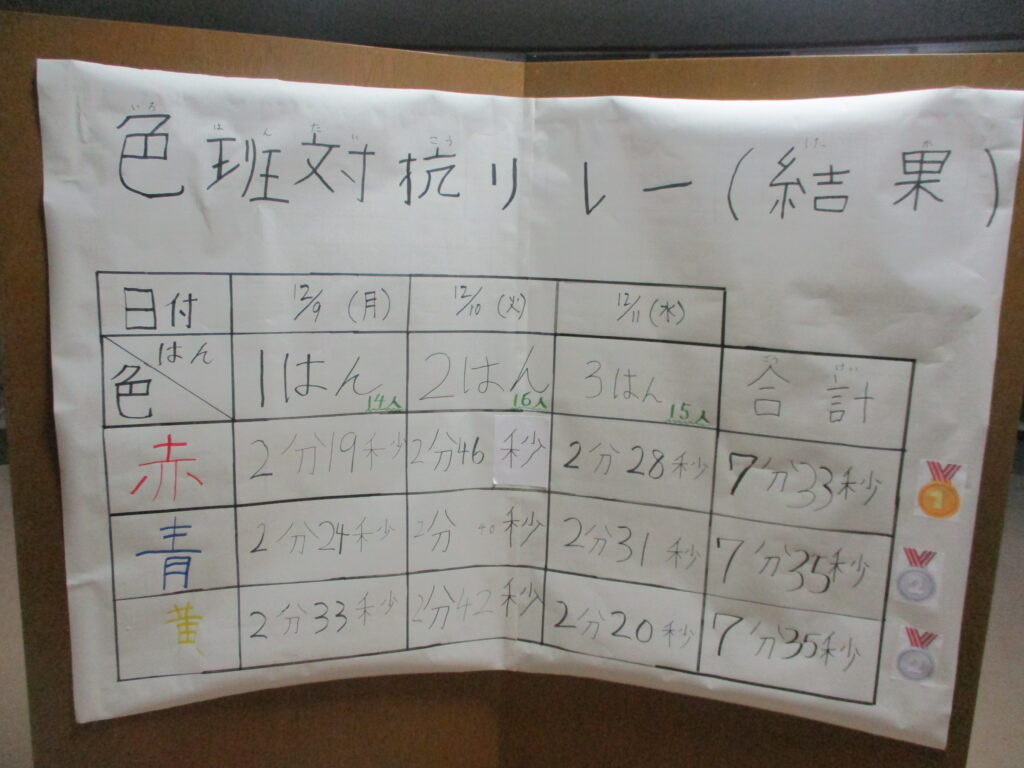 いろ はん たい こう けっ か
色班対抗リレー(結果)
日付 12/9 (月) 12/10 (火) 12/11 (水)
はん
色 1はん 14人 2はん 16人 3はん 15人 合計
赤 2分19秒 2分46秒 2分28秒 7分33秒 1
青 2分24秒 2分40秒 2分31秒 7分35秒 2
黄 2分33秒 2分42秒 2分20秒 7分35秒 2